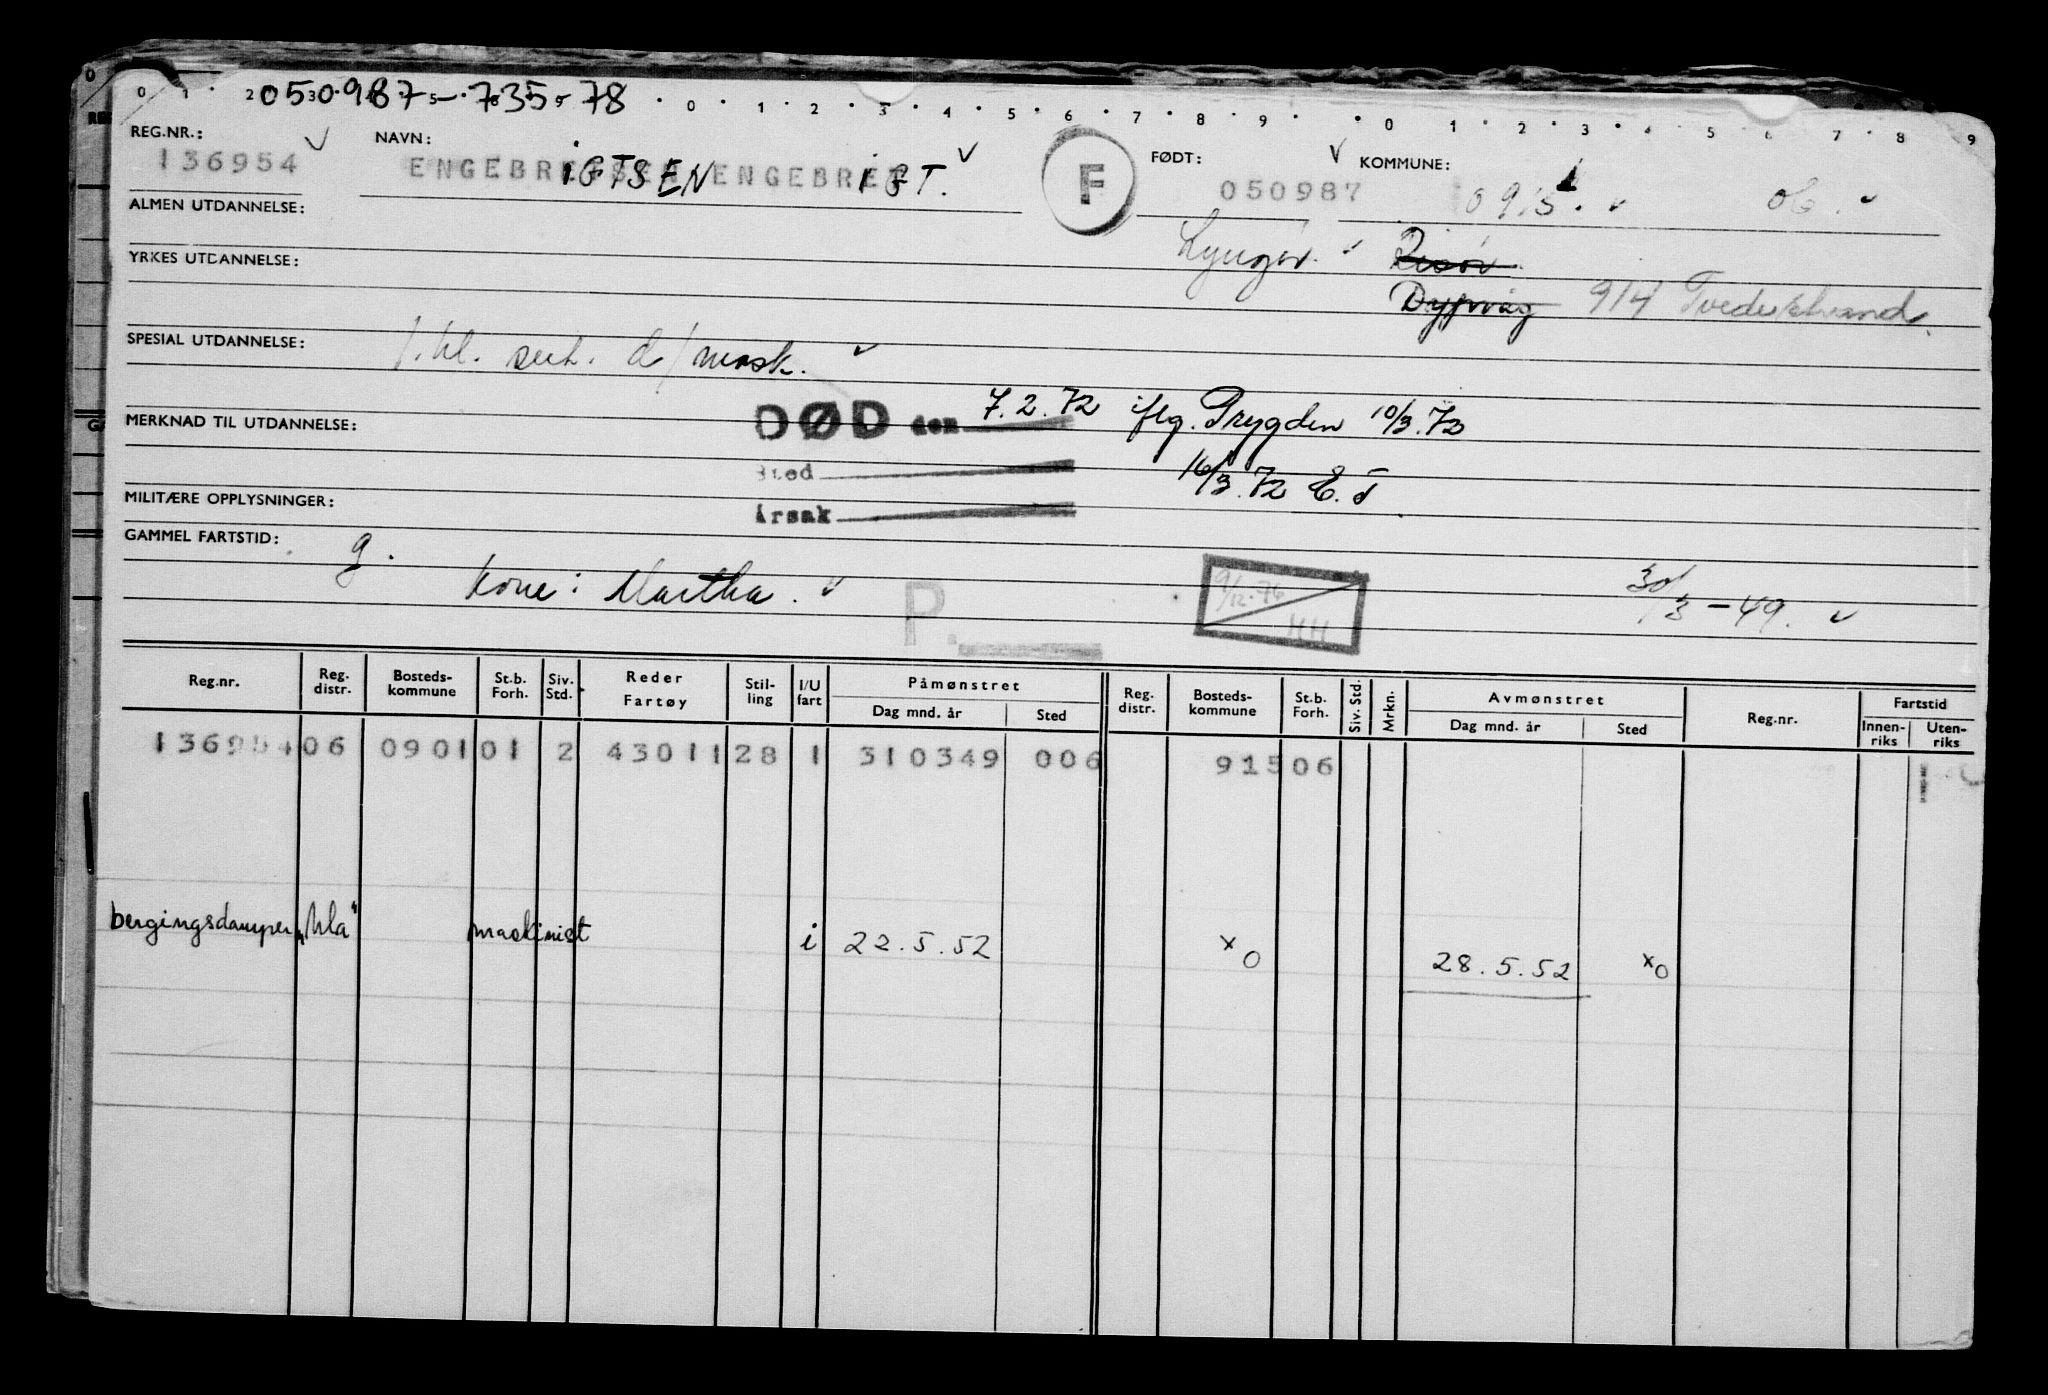 050987-73578
0 1 2 3 5 8 5 0 1 2 3 4 5 6 7 8 9 0 1 2 3 4 5 6 7 8 9
REG.NR.: NAVN: FØDT: KOMMUNE:
136954 ENGEBRIGTSEN ENGEBRIGT. F 050987 0915. 06.
ALMEN UTDANNELSE:
Lyngør. Risør
YRKES UTDANNELSE:
Dypvåg 914 Tvedestrand.
SPESIAL UTDANNELSE: 1. kl. sert. d/mask.
DØD den 7.2.72 iflg. Trygden 10/3.72
MERKNAD TIL UTDANNELSE:
Sted 16/3.72 E.T.
MILITÆRE OPPLYSNINGER: Årsak
GAMMEL FARTSTID: g.
kone: Martha. P. 9/12.76 HH 30/3-49.
Reg.nr. Reg. distr. Bosteds-kommune St.b. Forh. Siv. Std. Reder Fartøy Stil-ling I/U fart Påmønstret Dag mnd. år Sted Reg. distr. Bosteds-kommune St.b. Forh. Siv. Std. Mrkn. Avmønstret Dag mnd. år Sted Reg.nr. Fartstid Innen-riks Uten-riks
136954 06 0901 01 2 43011 28 1 310349 006 915 06
bergingsdamper „Ula" maskinist i 22.5.52 xo 28.5.52 xo